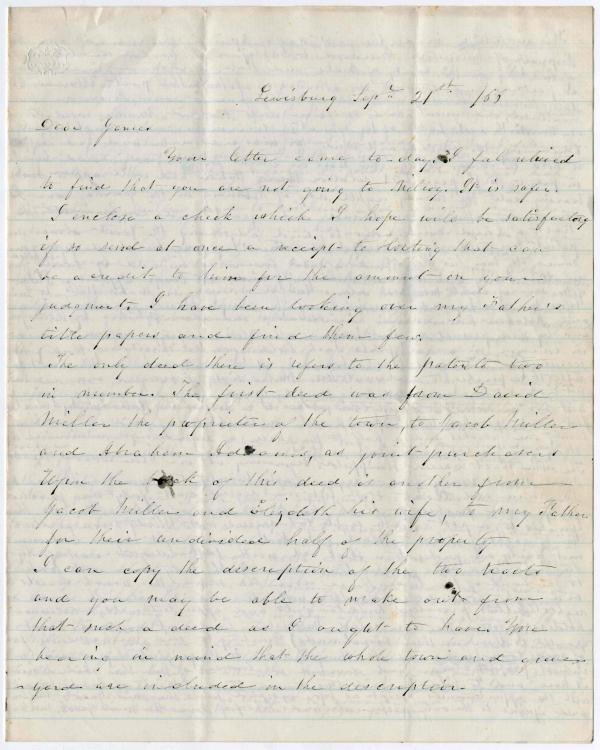 Lewisburg Sept 21st /66
Dear James
Your letter came to-day. I feel relieved
to find that you are not going to. It is safer.
I enclose a check which I hope will be satisfactory
if so send at once a receipt to that can
be a credit to him for the amount on your
judgment. I have been looking over my Father's
title papers and find them few.
The only deed there is refers to the patents two
in number. The first deed was from David
Miller the proprietor of the town, to Jacob Miller
and Abraham Adams, as joint purchasers
Upon the back of this deed is another from
Jacob Miller and Elizabeth his wife, to my Father
for their undivided half of the property
I can copy the description of the two tracts
and you may be able to make out from
that such a deed as I ought to have. You
bearing in mind that the whole town and grave
yard are included in the description.